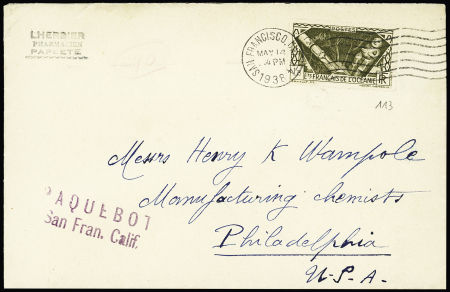 LHERBIER
PHARMACIEN
PAPEETE
SAN FRANCISCO, C
MAY 14
PM
1938
POSTES
Ets FRANÇAIS DE L'OCÉANIE
RF
113
Messrs Henry K Wampole
Manufacturing chemists
Philadelphia
U.S.A.
PAQUEBOT
San Fran. Calif.